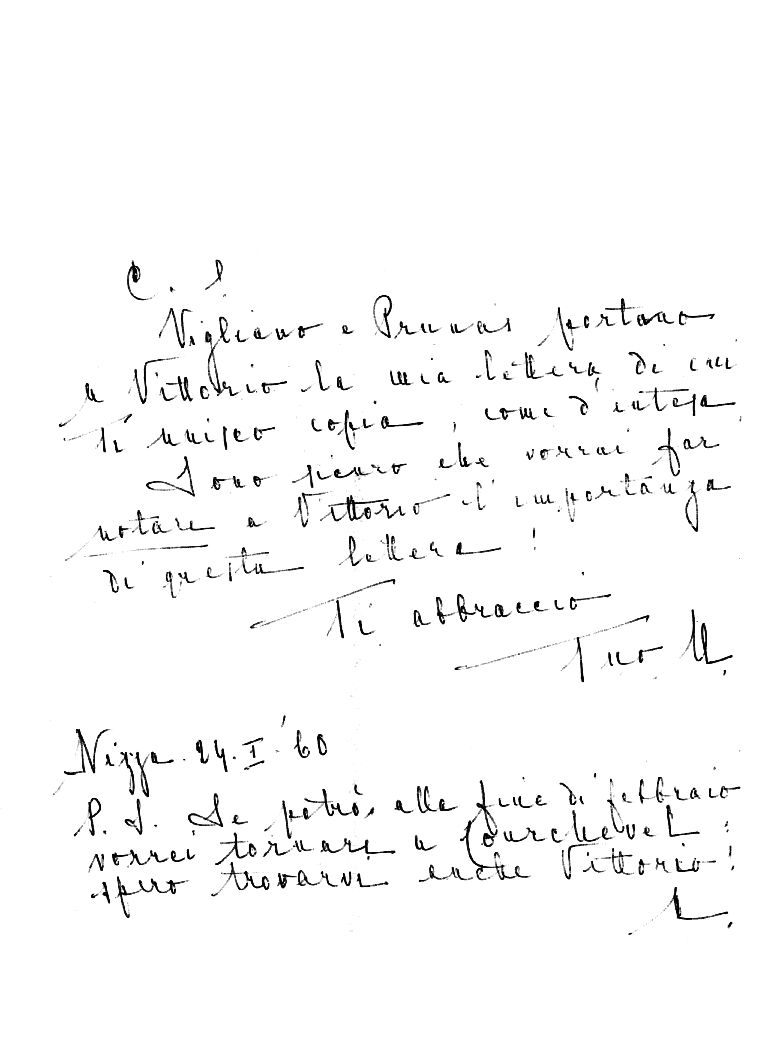 C. S.
Vigliano e Prunas portano
a Vittorio la mia lettera di cui
ti unisco copia, come d'intesa
Sono sicuro che vorrai far
notare a Vittorio l'importanza
di questa lettera!
Ti abbraccio
Tuo U.
Nizza 24.I.'60
P.S. Se potrò, alla fine di febbraio
vorrei tornare a Courchevel:
spero trovarvi anche Vittorio!
U.